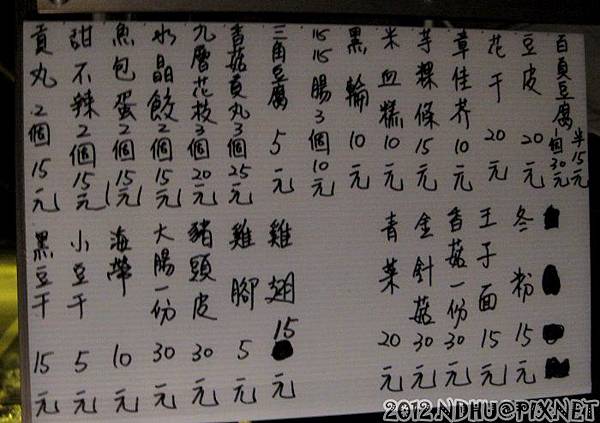 百頁豆腐1個30元
半15元
豆皮20元
花干20元
芋粿條15元
米血糕10元
黑輪10元
腸3個10元
三角豆腐5元
香菇貢丸3個25元
九層花枝3個20元
水晶餃2個15元
魚包蛋2個15元
甜不辣2個15元
貢丸2個15元
冬粉15元
王子面15元
香菇一份30元
金針菇30元
青菜20元
雞翅15元
雞腳5元
豬頭皮30元
大腸一份30元
海帶10元
小豆干5元
黑豆干15元
2012.NDHU@PIXNET